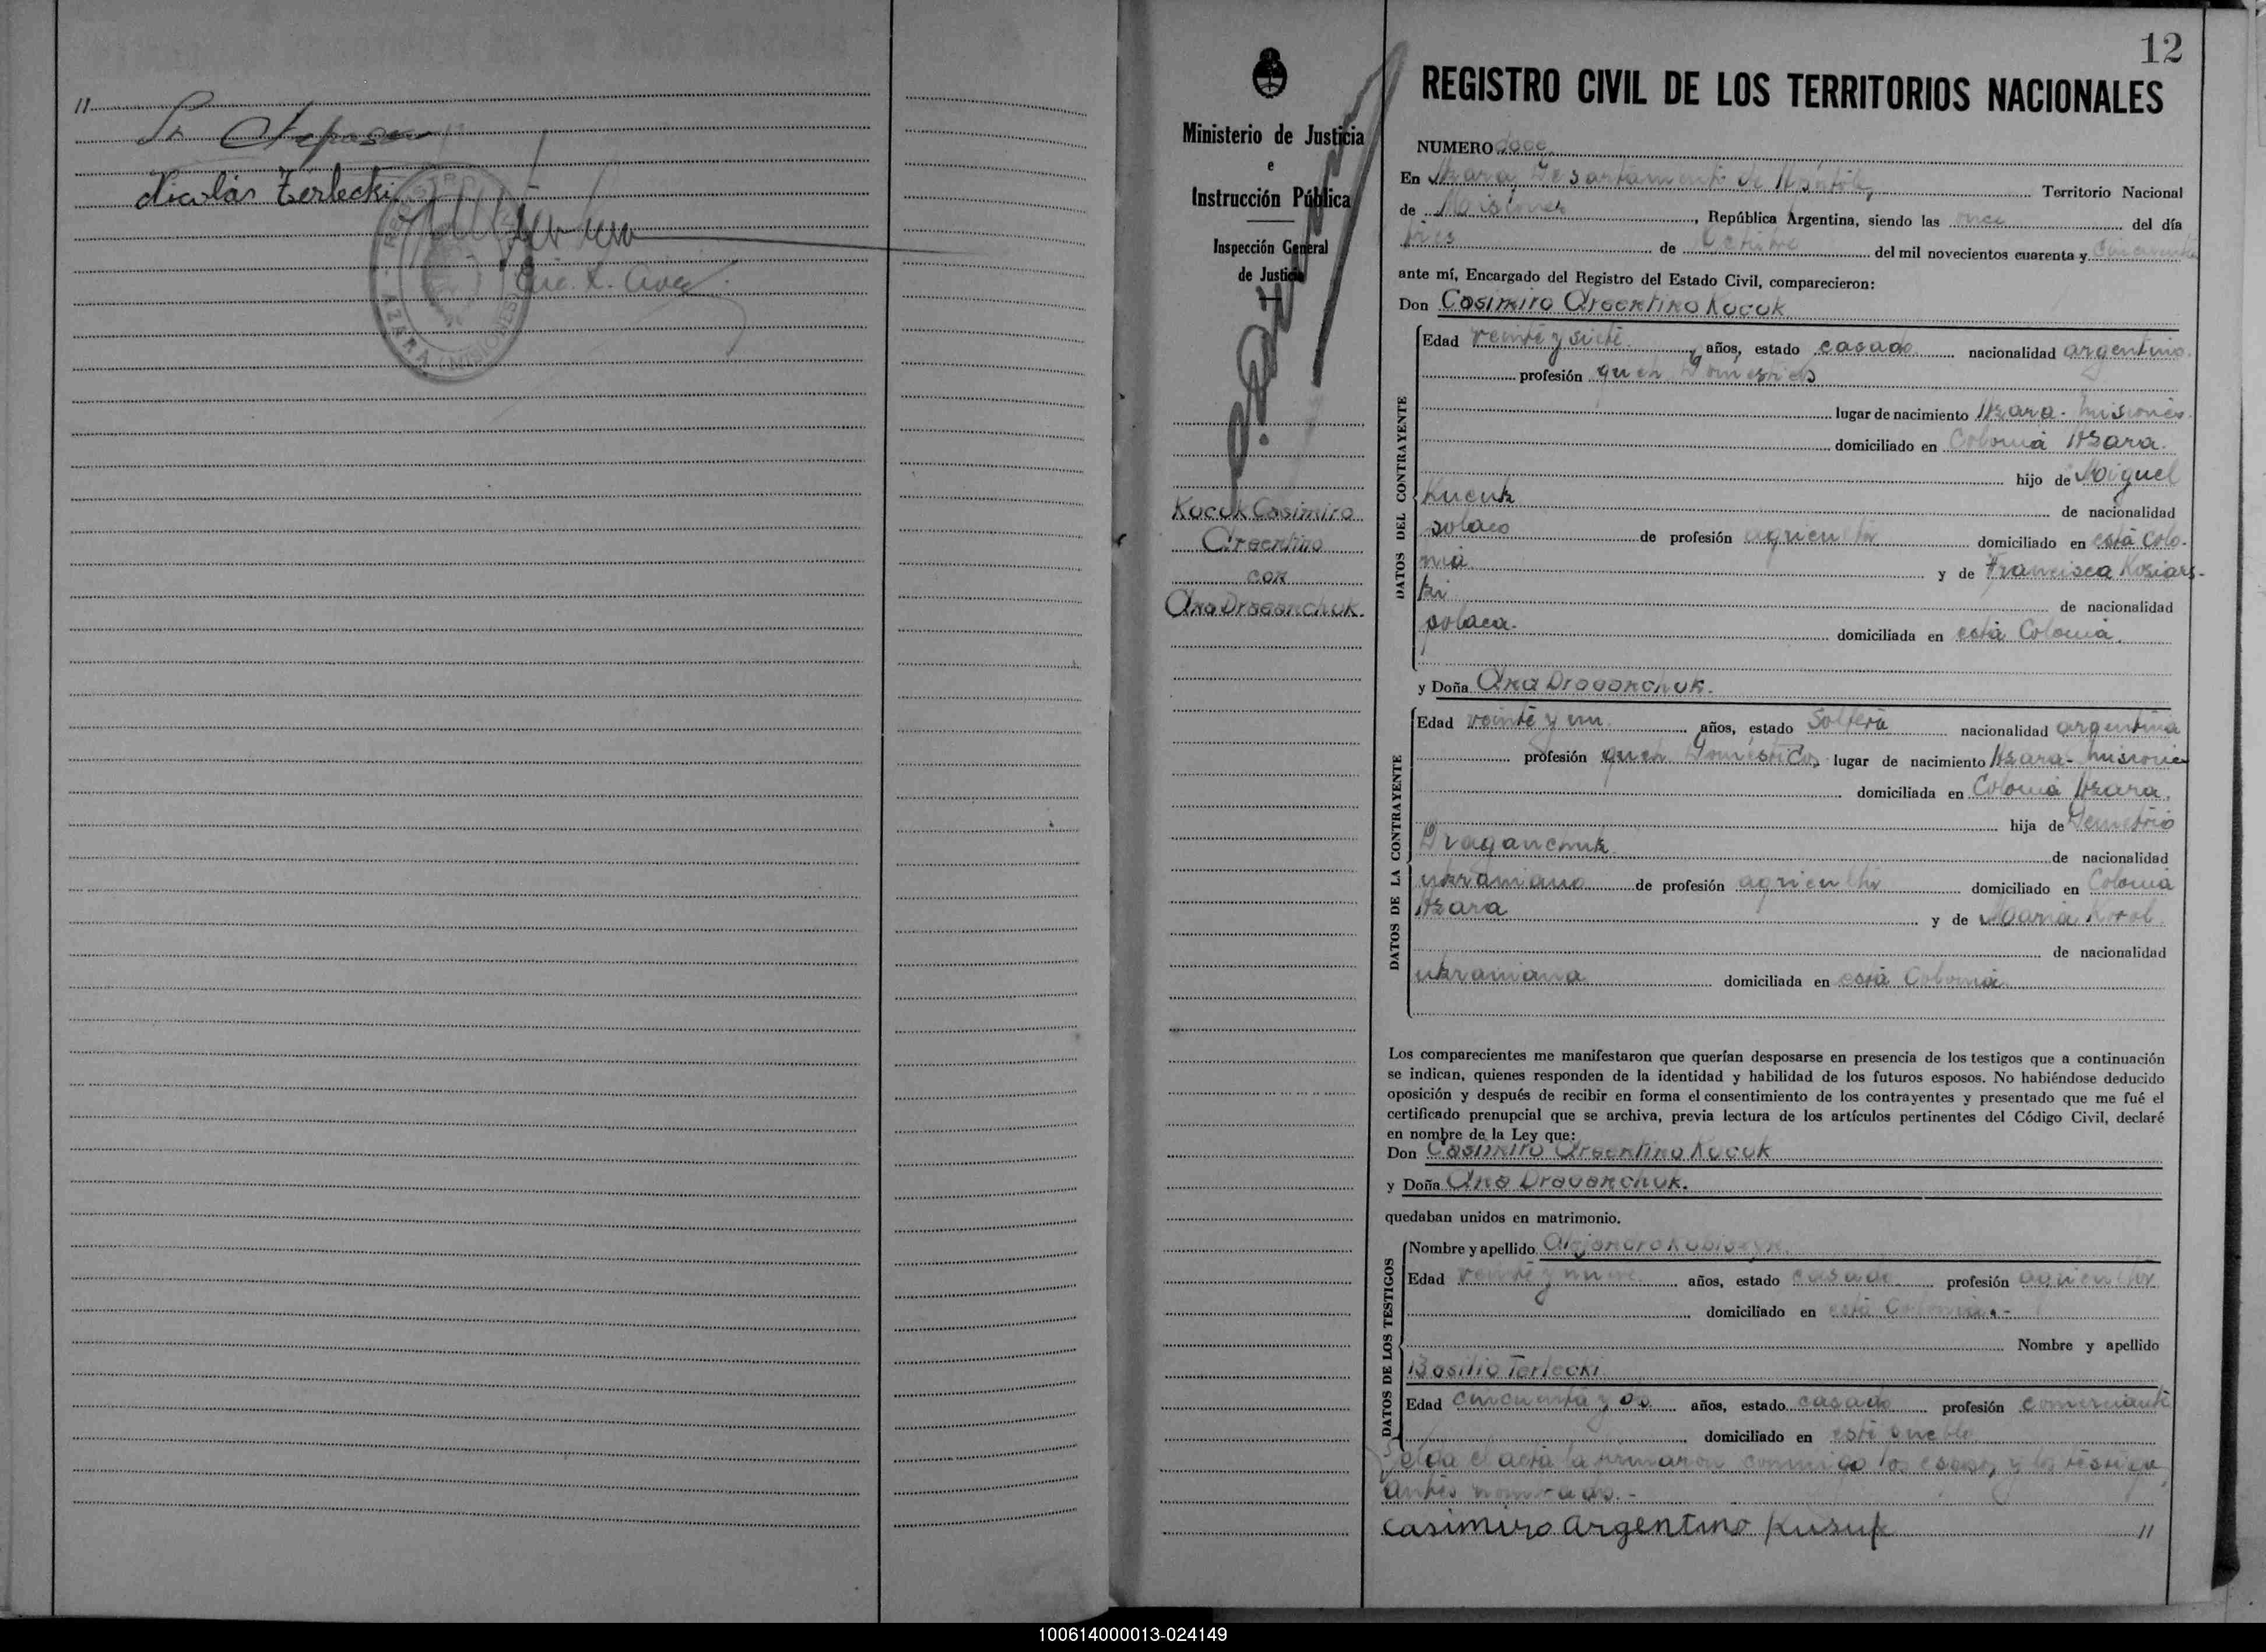 //
Nicolás Terlecki
12
Ministerio de Justicia
e
Instrucción Pública
Inspección General
de Justicia
Kucuk Casimiro
Argentino
con
Ana Draganchuk.
REGISTRO CIVIL DE LOS TERRITORIOS NACIONALES
NUMERO doce
En Azara, Departamento de Apóstoles, Territorio Nacional
de Misiones, República Argentina, siendo las once del día
tres de Octubre del mil novecientos cuarenta y cincuenta
ante mí, Encargado del Registro del Estado Civil, comparecieron:
Don Casimiro Argentino Kucuk
DATOS DEL CONTRAYENTE
Edad veinte y siete años, estado casado nacionalidad argentino.
profesión queh. domesticos
lugar de nacimiento Azara - Misiones.
domiciliado en Colonia Azara.
hijo de Miguel
Kucuk de nacionalidad
polaco de profesión agricultor domiciliado en está Colo-
nia y de Francisca Koziars-
ki de nacionalidad
polaca. domiciliada en está Colonia.
y Doña Ana Draganchuk.
DATOS DE LA CONTRAYENTE
Edad veinte y un años, estado Soltera nacionalidad argentina
profesión queh. domésticos lugar de nacimiento Azara - Misiones
domiciliada en Colonia Azara.
hija de Demetrio
Draganchuk de nacionalidad
ukraniano de profesión agricultor domiciliado en Colonia
Azara y de Maria Korol
de nacionalidad
ukraniana domiciliada en está Colonia.
Los comparecientes me manifestaron que querían desposarse en presencia de los testigos que a continuación
se indican, quienes responden de la identidad y habilidad de los futuros esposos. No habiéndose deducido
oposición y después de recibir en forma el consentimiento de los contrayentes y presentado que me fué el
certificado prenupcial que se archiva, previa lectura de los artículos pertinentes del Código Civil, declaré
en nombre de la Ley que:
Don Casimiro Argentino Kucuk
y Doña Ana Draganchuk.
quedaban unidos en matrimonio.
DATOS DE LOS TESTIGOS
Nombre y apellido Alejandro
Edad veinte y nueve años, estado casado profesión agricultor
domiciliado en está Colonia.-
Nombre y apellido
Basilio Terlecki
Edad cincuenta y dos años, estado casado profesión comerciante
domiciliado en esté pueblo
Leida el acta la firmaron conmigo los esposos y los testigos
antes nombrados.-
Casimiro Argentino Kusuk //
100614000013-024149